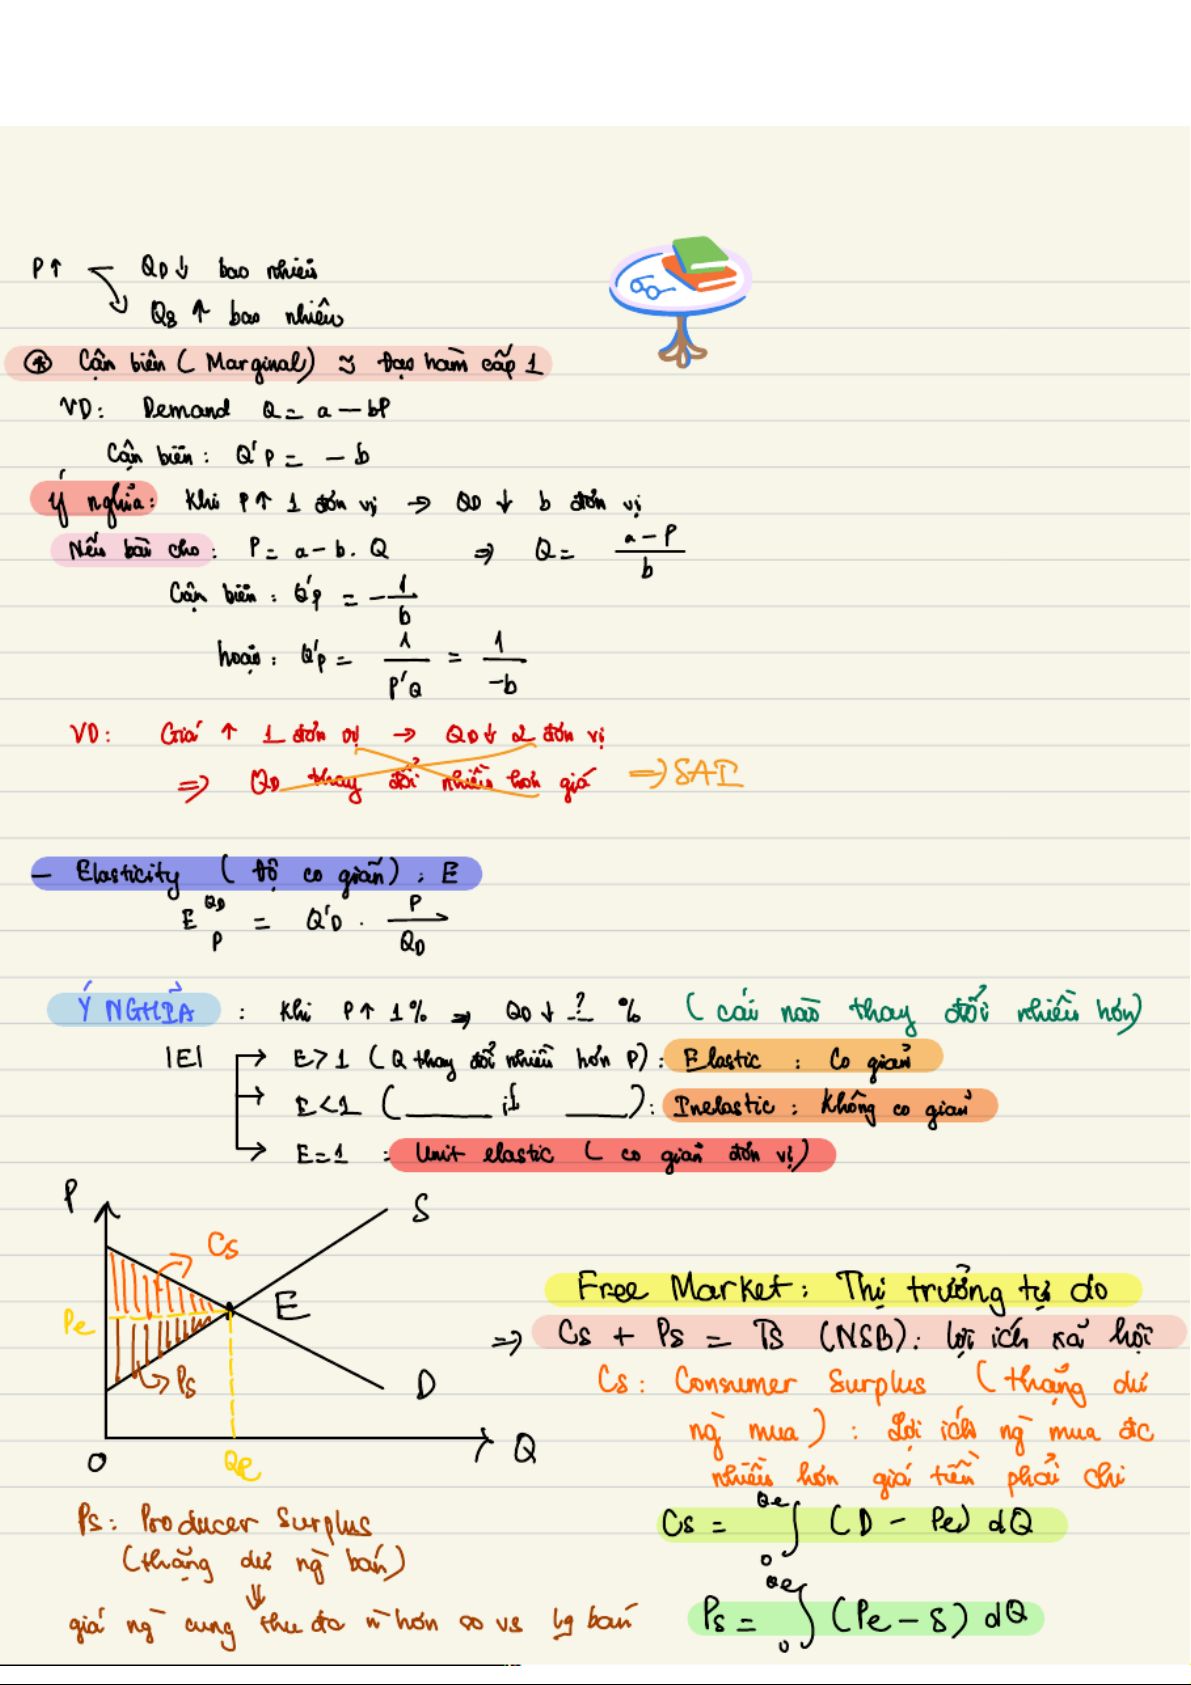 P↑ → QD↓ bao nhiêu
→ QS ↑ bao nhiêu
⊛ Cận biên (Marginal) ≈ Đạo hàm cấp 1
VD: Demand Q = a - bP
Cận biên: Q'P = - b
Ý nghĩa: Khi P↑ 1 đơn vị → QD ↓ b đơn vị
Nếu bài cho: P = a - b. Q ⇒ Q = (a - P)/b
Cận biên: Q'P = - 1/b
hoặc: Q'P = 1/P'Q = 1/-b
VD: Giá ↑ 1 đơn vị → QD↓ 2 đơn vị
⇒ QD thay đổi nhiều hơn giá ⇒ SAI
- Elasticity (độ co giãn): E
E QD P = Q'D . P/QD
Ý NGHĨA: Khi P↑ 1% ⇒ QD↓ ? % (cái nào thay đổi nhiều hơn)
|E| → E>1 (Q thay đổi nhiều hơn P): Elastic: Co giãn
→ E<1 (____ ít ____): Inelastic: Không co giãn
→ E=1: Unit elastic (co giãn đơn vị)
P
S
Cs
Pe
E
Ps
D
O
Qe
Q
Free Market: Thị trường tự do
⇒ Cs + Ps = TS (NSB): lợi ích xã hội
Cs: Consumer Surplus (thặng dư
ng` mua): Lợi ích ng` mua đc
nhiều hơn giá tiền phải chi
Cs = ∫0Qe (D - Pe) dQ
Ps = ∫0Qe (Pe - S) dQ
Ps: Producer Surplus
(thặng dư ng` bán)
⇓
giá ng` cung thu đc n` hơn so vs bán